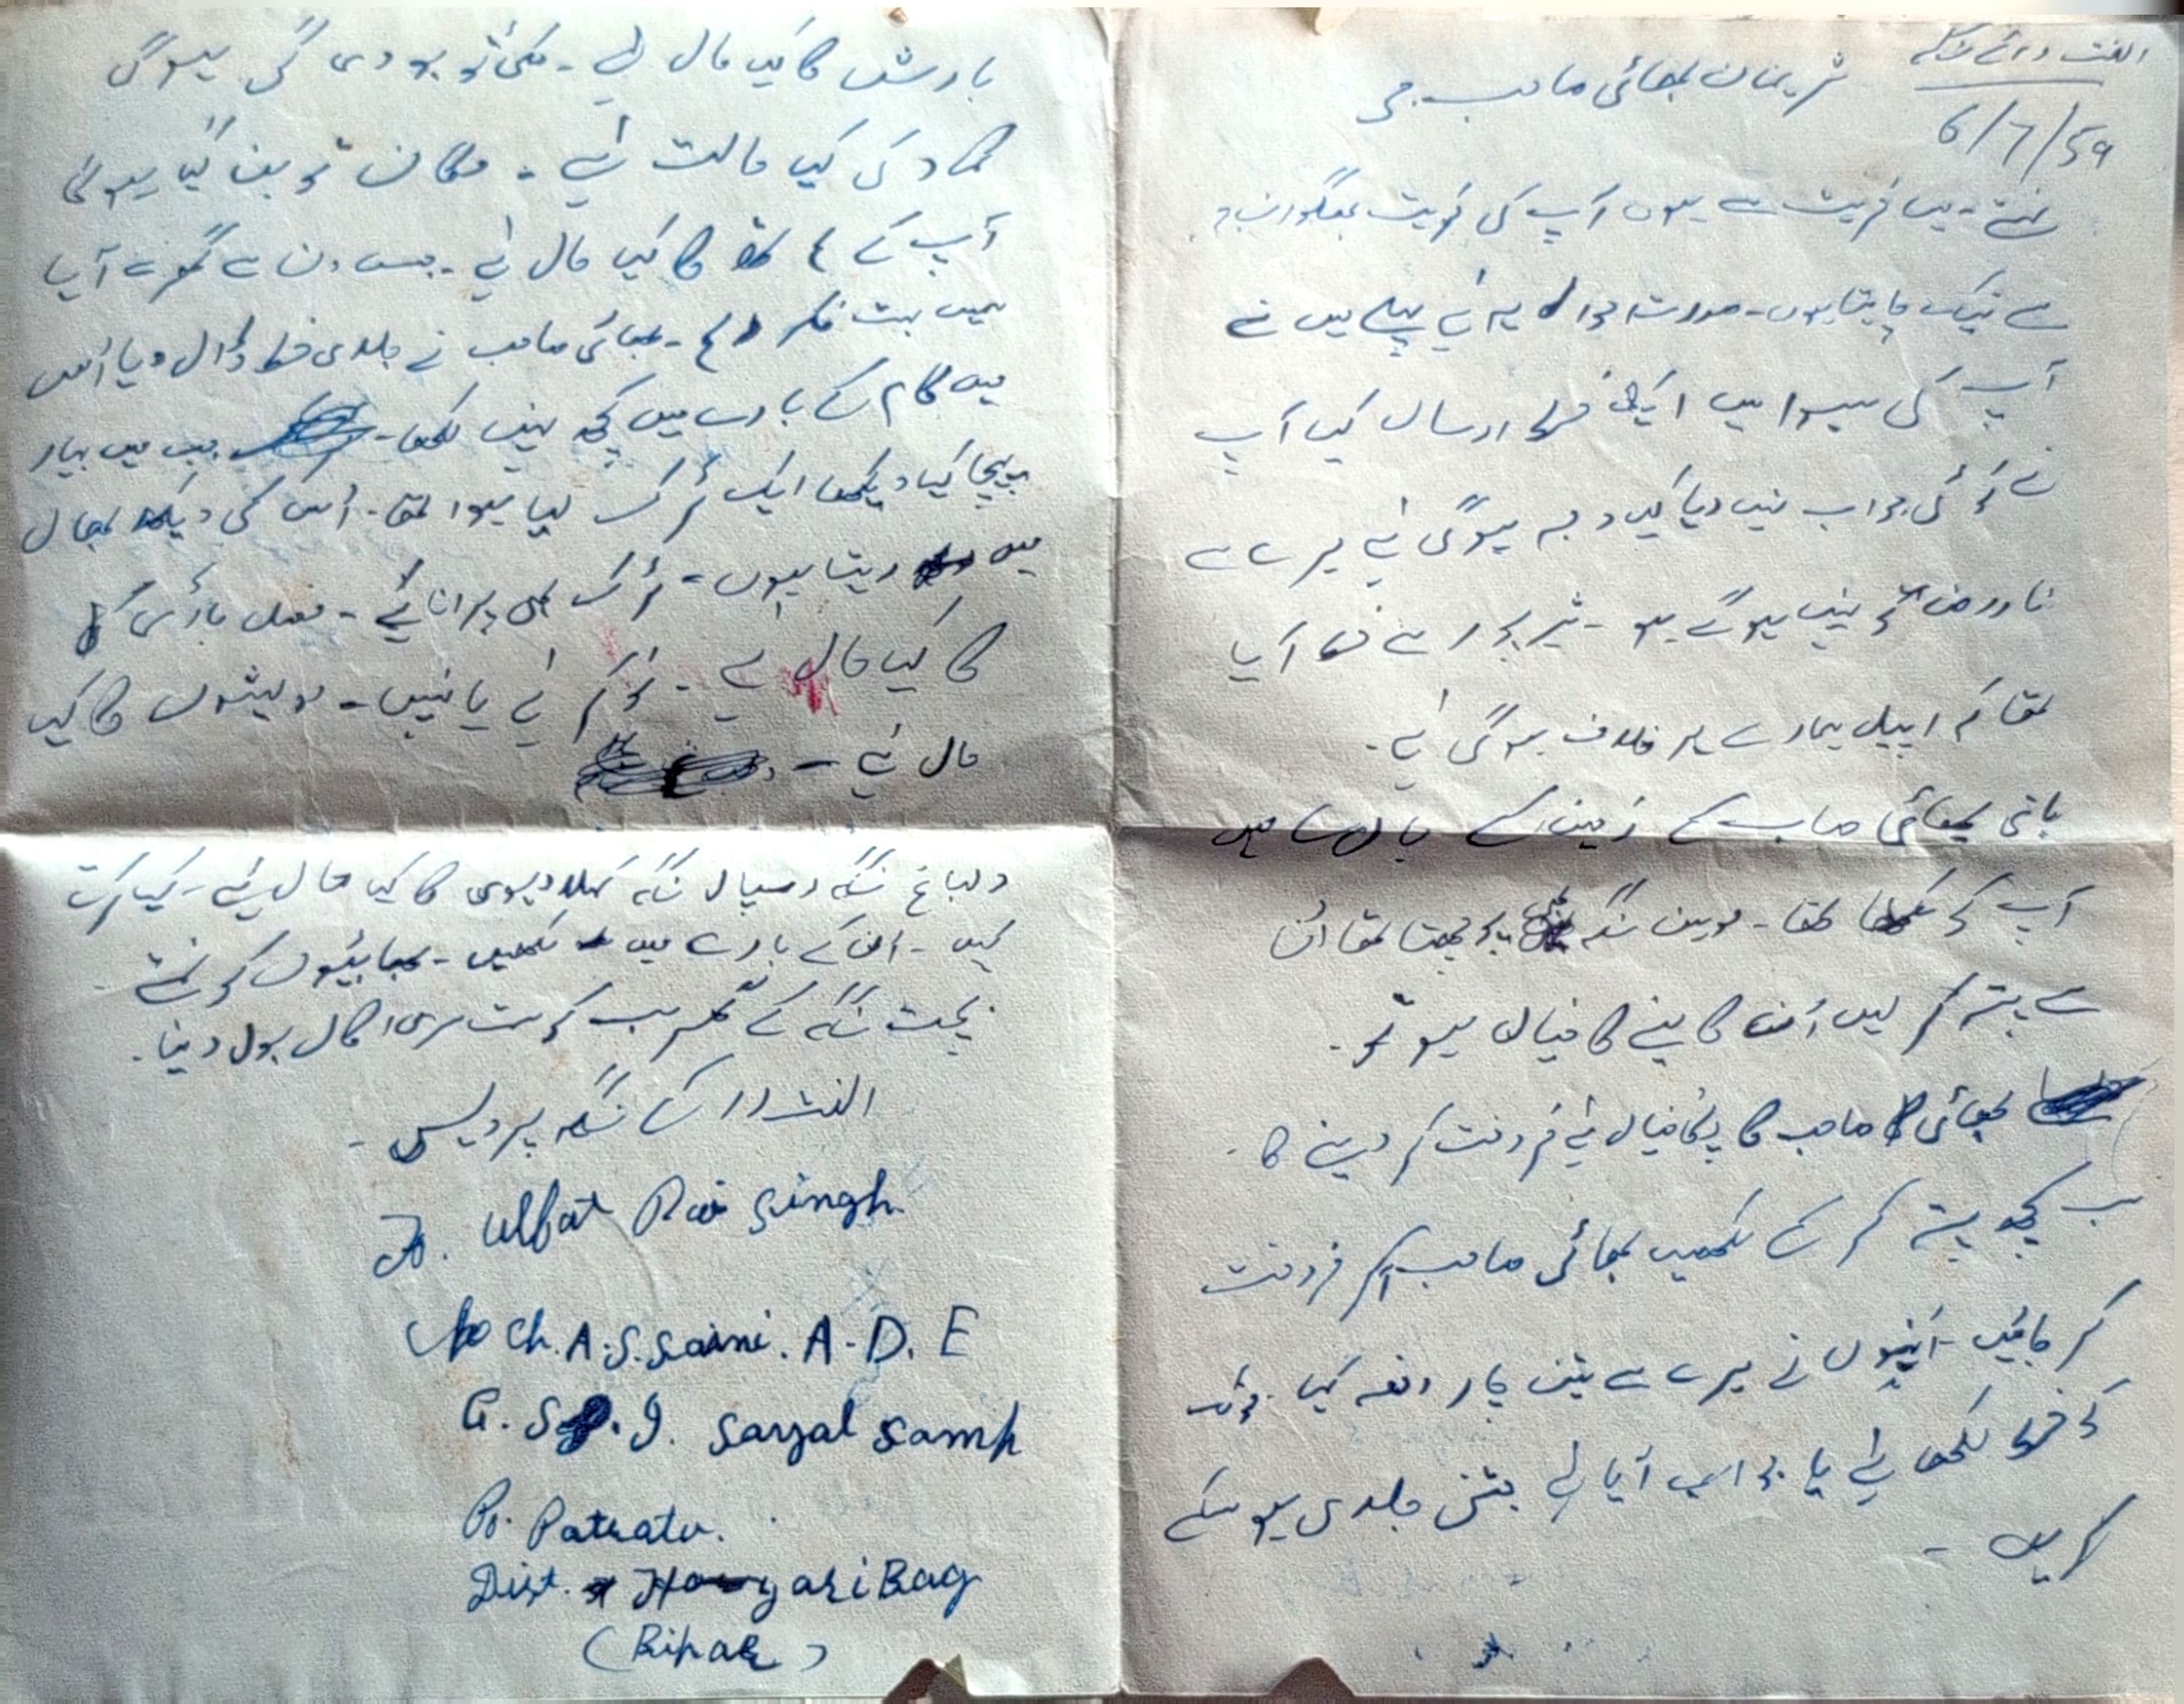 الفت رائے سنگھ
6/7/59
شریمان بھائی صاحب جی
نمستے۔ میں خریت سے ہوں آپ کی خریت بھگوان
سے نیک چاہتا ہوں۔ صورت احوال یہ ہے پہلے میں نے
آپ کی سیوا میں ایک خط ارسال کیا آپ
نے کوئی جواب نہیں دیا کیا وجہ ہوگی ہے میرے سے
ناراض تو نہیں ہوگے ہو۔ سے خط آیا
تھا کہ اپیل ہمارے پر خلاف ہوگی ہے۔
باقی بھائی صاحب کے زمین کے بارے میں
آپ کو لکھا تھا۔ موہن سنگھ بھی پوچھتا تھا ان
سے پتہ کر لیں ان کا لینے کا خیال ہو تو۔
بھائی صاحب کا پکا خیال ہے فروخت کر دینے کا۔
سب کچھ پتہ کر کے لکھیں بھائی صاحب آکر فروخت
کر جائیں۔ انہوں نے میرے سے تین چار دفعہ کہا
کو خط لکھا ہے یا جواب آیا ہے جتنی جلدی ہو سکے
کریں۔
بارش کا کیا حال ہے۔ مکئی تو بو دی گی ہوگی
کماد کی کیا حالت ہے۔ مکان تو بن گیا ہوگا
آپ کے کا کیا حال ہے۔ جس دن سے گھر سے آیا
ہمیں بہت فکر رہا۔ بھائی صاحب نے جلدی خط ڈال دیا اس
میں کام کے بارے میں کچھ نہیں لکھا۔ جب میں بہار
پہنچا کیا دیکھا ایک ٹرک لیا ہوا تھا۔ اس کی دیکھ بھال
میں رہتا ہوں۔ ٹرک بھی پرانا ہے۔ فصل باڑی
کا کیا حال ہے۔ نوکر ہے یا نہیں۔ مویشوں کا کیا
حال ہے۔
دلباغ سنگھ رسپال سنگھ کملا دیوی کا کیا حال ہے۔ کیا کرتے
ہیں۔ ان کے بارے میں لکھیں۔ بھابیوں کو نمستے۔
بچت سنگھ کے گھر سب کو ست سری اکال بول دینا۔
الفت رائے سنگھ پردیسی۔
Ulfat Rai Singh.
c/o Ch. A. S. Saini. A. D. E
G. S. I. Sayal Samp
Po. Patratu.
Dist. HazariBag
(Bihar)